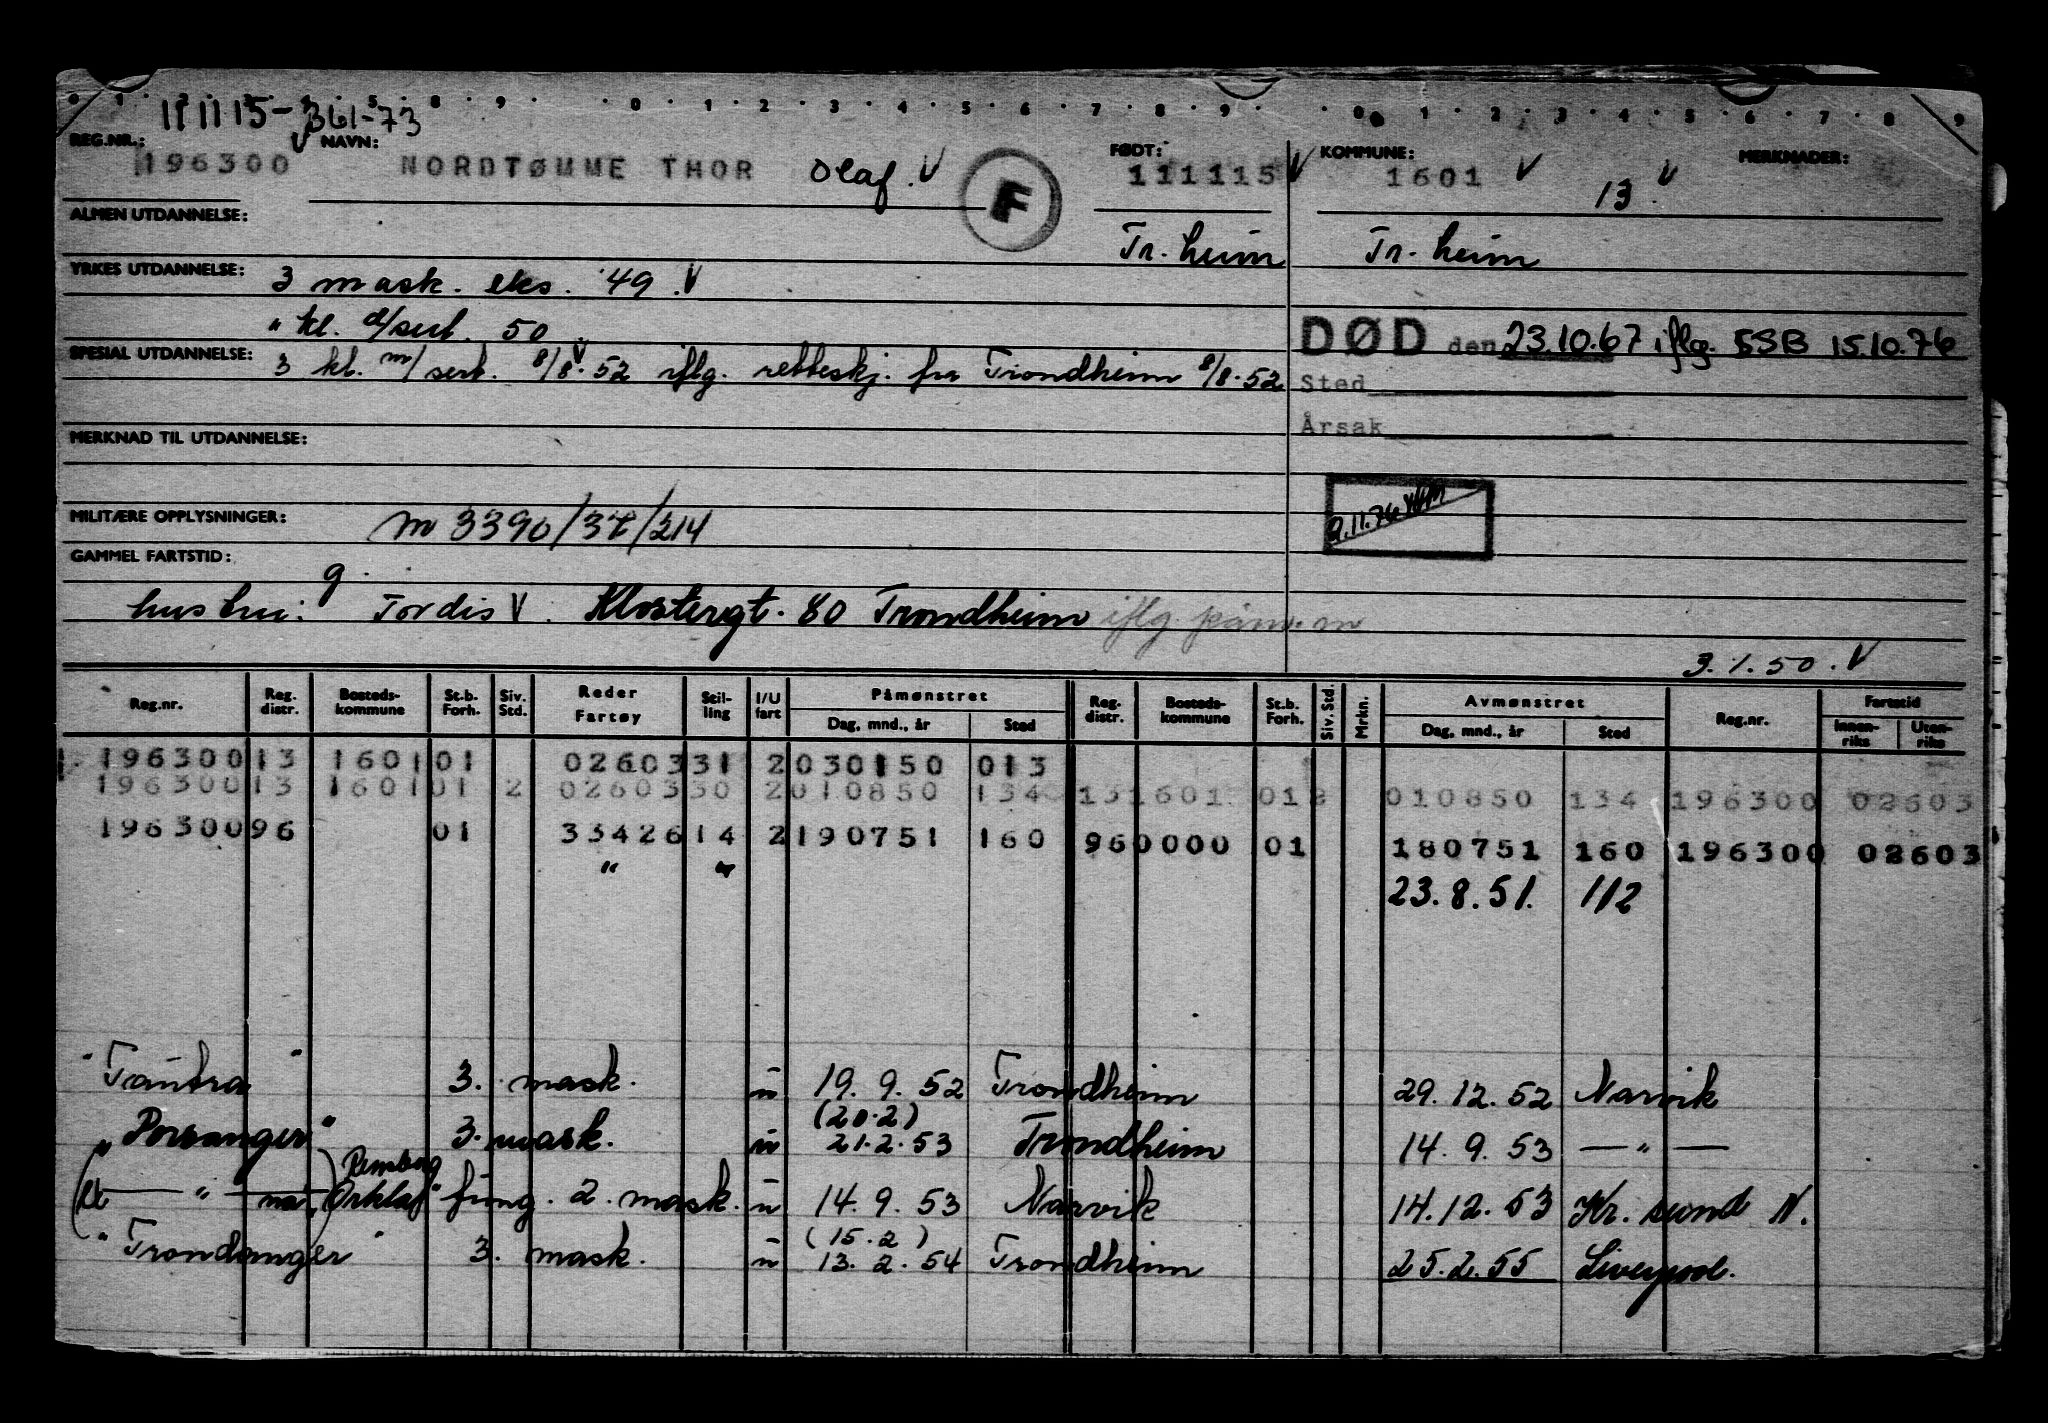 0 1 2 3 4 5 8 9 0 1 2 3 4 5 6 7 8 9 0 1 2 3 4 5 6 7 8 9
111115-36173
REG.NR.: NAVN: FØDT: KOMMUNE: MERKNADER:
196300 V NORDTØMME THOR Olaf. V F 111115 V 1601 V 13. V
ALMEN UTDANNELSE:
Tr. heim Tr. heim
YRKES UTDANNELSE: 3 mask. eks. '49. V
" kl. d/sert. 50
DØD den 23.10.67 iflg. SSB 15.10.76
SPESIAL UTDANNELSE: 3 kl. m/sert. 8/8.52 V iflg. retteskj. fra Trondheim 8/8.52
Sted
Årsak
MERKNAD TIL UTDANNELSE:
9.11.76
MILITÆRE OPPLYSNINGER: m 3390/37/214
GAMMEL FARTSTID:
g.
hustru: Tordis V. Klostergt. 80 Trondheim iflg. påm. m
3.1.50. V
Reg.nr. Reg. distr. Bosteds-kommune St.b. Forh. Siv. Std. Reder Fartøy Stil-ling I/U fart Påmønstret Dag, mnd., år Sted Reg. distr. Bosteds-kommune St.b. Forh. Siv. Std. Mrkn. Avmønstret Dag, mnd., år Sted Reg.nr. Fartstid Innen-riks Uten-riks
196300 13 1601 01 02603 31 2 030150 013
196300 13 1601 01 2 02603 30 2 010850 134 13 1601 01 2 010850 134 196300 02603
196300 96 01 33426 14 2 190751 160 96 0000 01 180751 160 196300 02603
" " 23.8.51. 112
"Tautra" 3. mask. u 19.9.52 Trondheim 29.12.52 Narvik
(20.2)
"Porsanger" 3. mask. u 21.2.53 Trondheim 14.9.53 — " —
— " — nå "Orklaf" fung. 2. mask. u 14.9.53 Narvik 14.12.53 Kr. sund N.
(15.2)
"Trondanger" 3. mask. u 13.2.54 Trondheim 25.2.55 Liverpool.